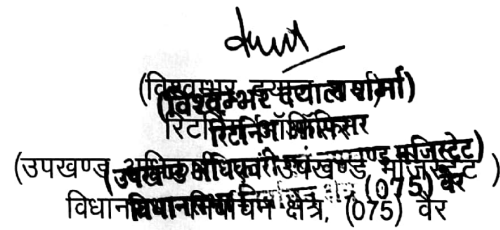 (विश्वम्भर दयाल शर्मा)
रिटर्निंग ऑफिसर
(उपखण्ड अधिकारी एवं उपखण्ड मजिस्ट्रेट)
विधानसभा निर्वाचन क्षेत्र, (075) वैर